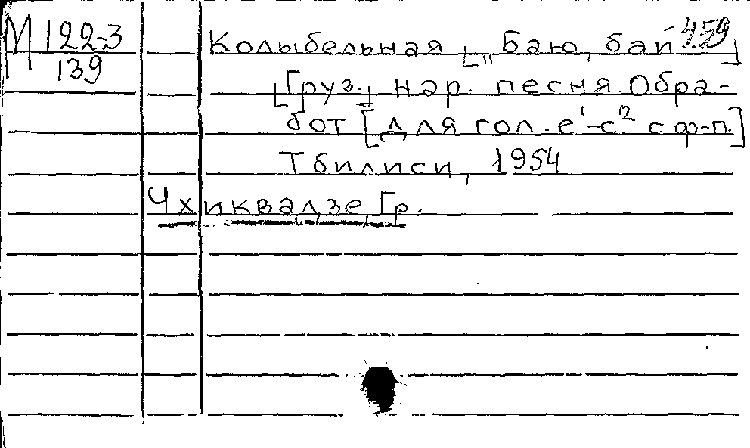 М 122-3 Колыбельная [„Баю, бай 459]
139 [Груз.] нар. песня. Обра-
бот [для гол. e¹-c² с ф-п.]
Тбилиси, 1954
Чхиквадзе, Гр.